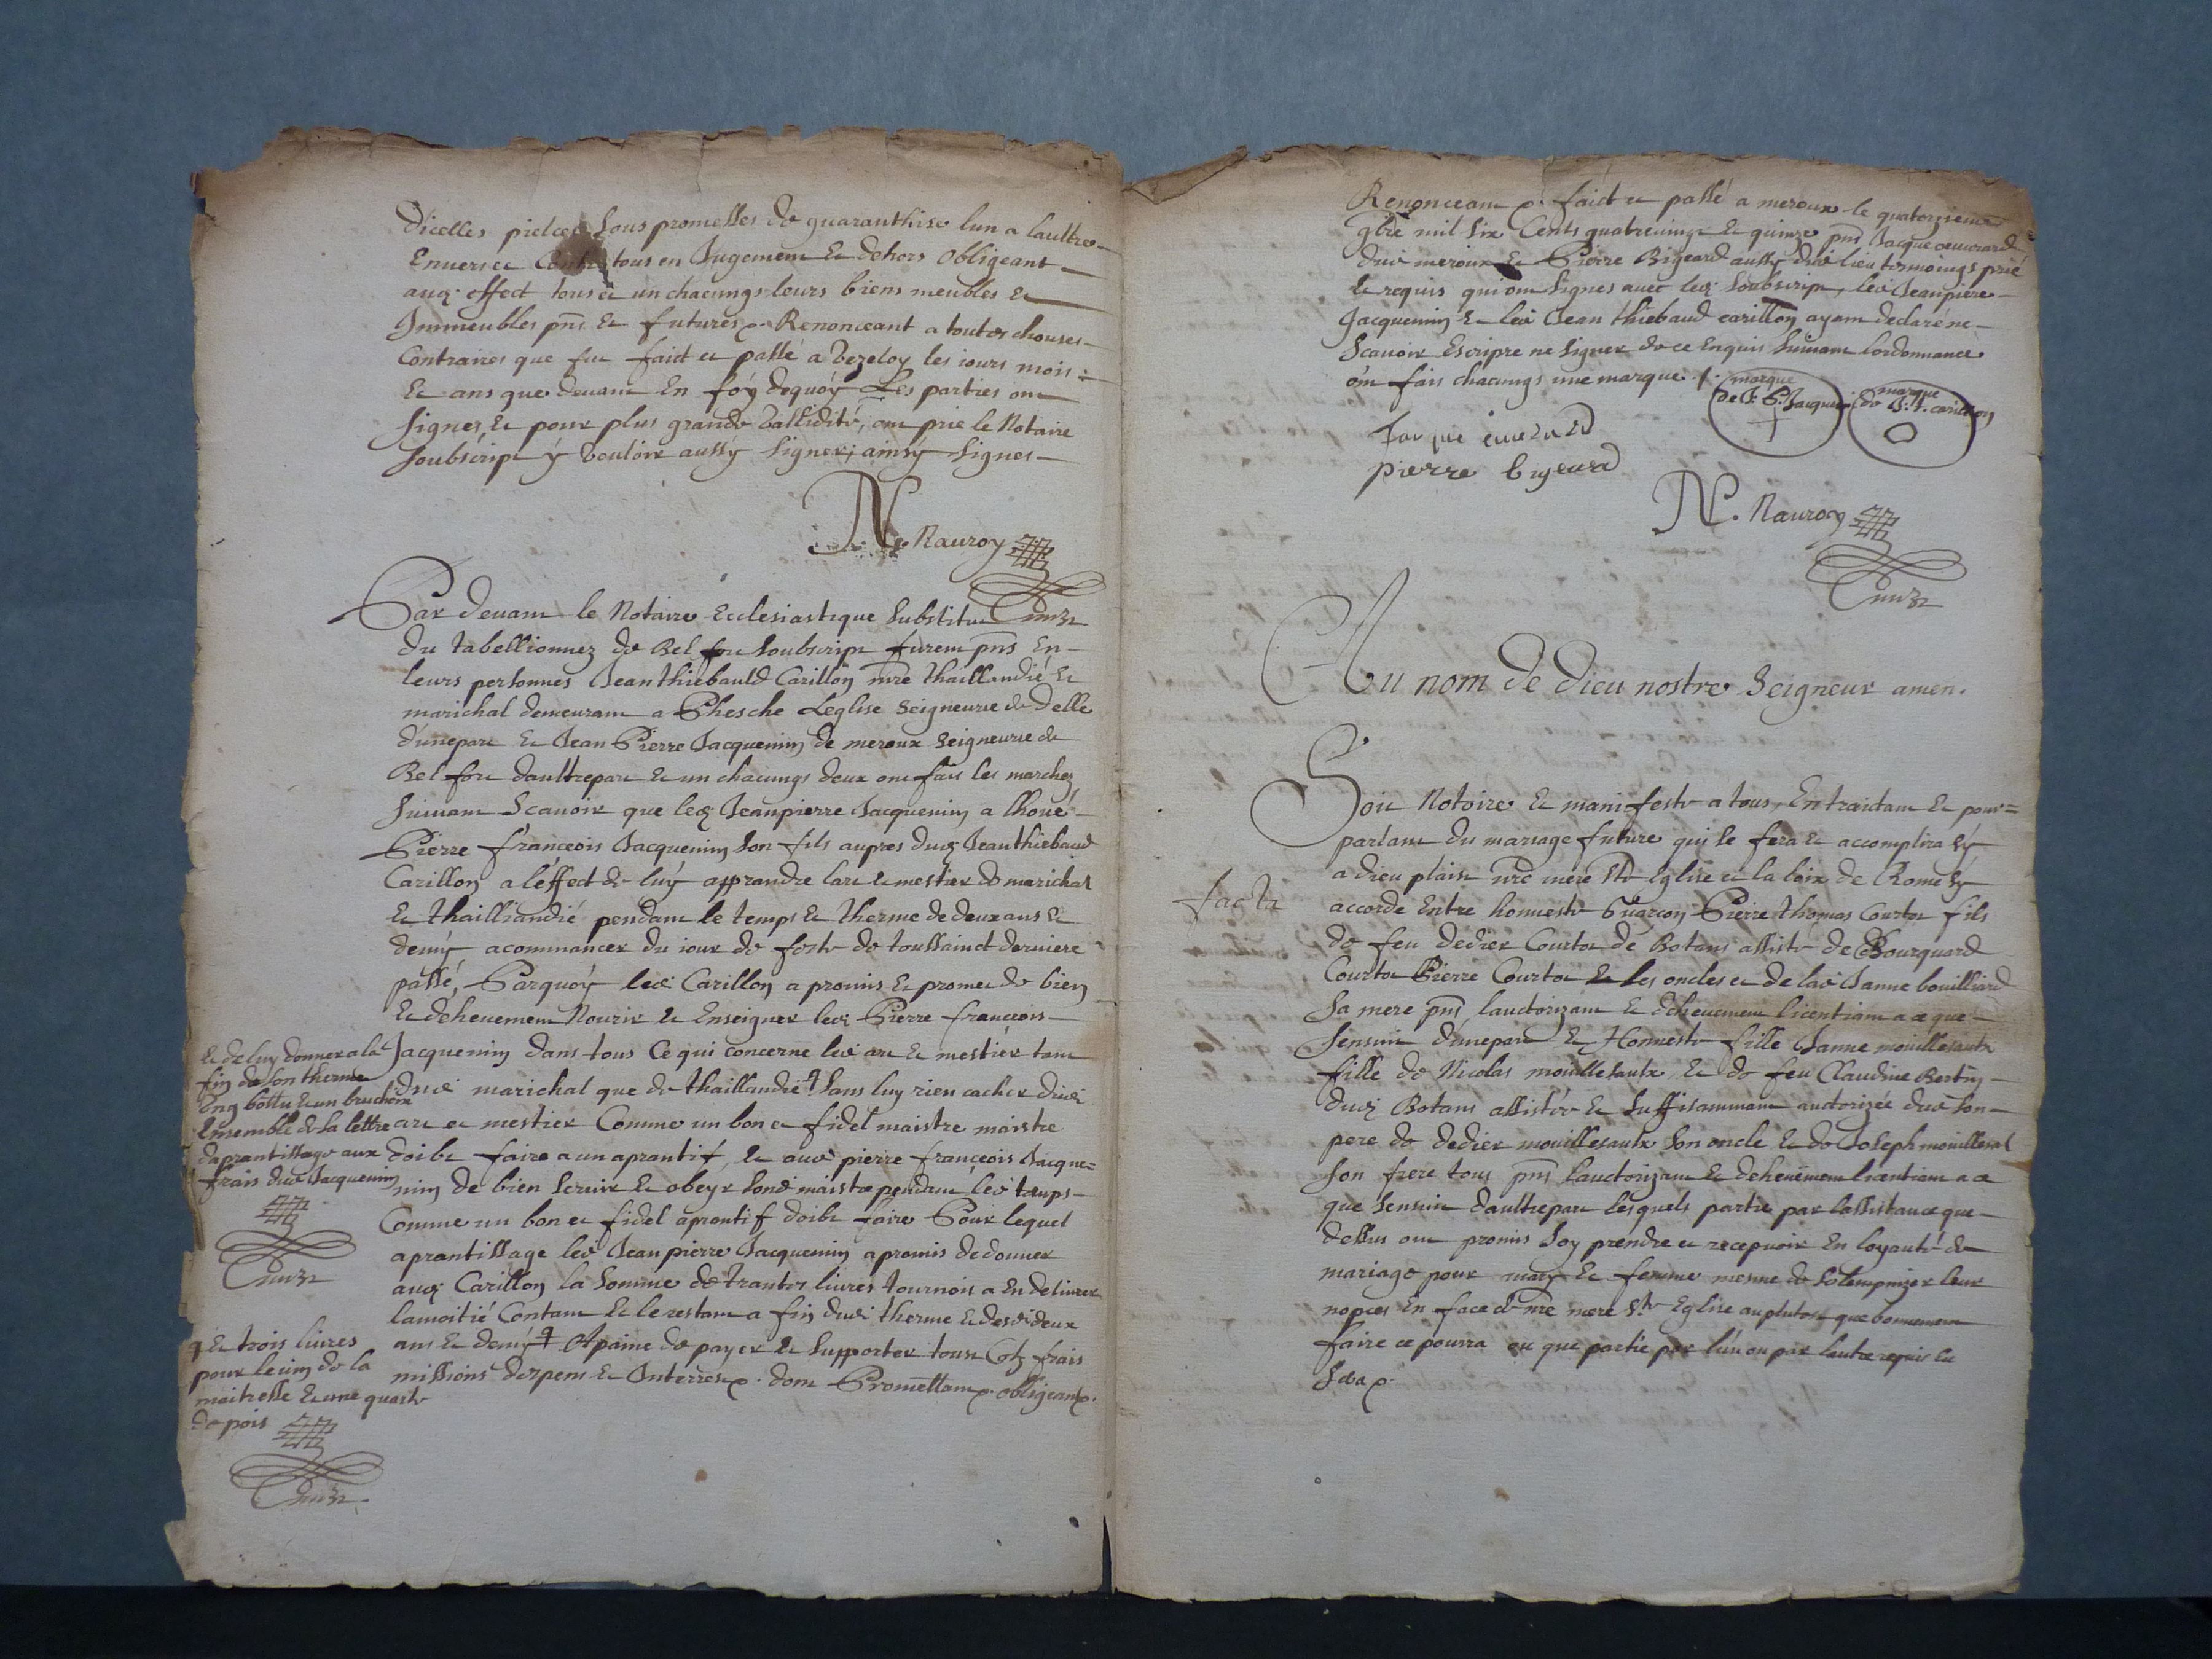 dicelles pielces sous promesses de guaranthise lun a laultre
Envers et Contre tous en Jugement et dehors Obligeant
auq. effect tous et un chacungs leurs biens meubles et
Immeubles pns. et futures p. Renonceant a toutes chouses
Contraires que fut faict et passé a Vezeloy les iours mois
et ans que devant En foy dequoÿ Les parties ont
signes, et pour plus grande Vallidité, ont prie le Notaire
soubscript ÿ Vouloir aussÿ signer; ainsÿ signes
N. Nauroy
Par devant le Notaire Ecclesiastique substitut
du tabellionnez de Belfort soubscript furent pns En
leurs personnes Jean thiebauld Carillon mre thaillandié et
marichal demeurant a Phesche Leglise Seigneurie de Delle
dunepart et Jean Pierre Jacquenin de meroux Seigneurie de
Belfort daultrepart et un chacungs deux ont fais les marchez
suivant Scavoir que led Jeanpierre Jacquenin a lhoué
Pierre françeois Jacquenin son fils aupres dud Jeanthiebaud
Carillon a léffect de luÿ apprandre lart et mestier de marichal
et thailliandié pendant le temps et therme de deux ans et
demÿ acommancer du iour de feste de toussainct derniere
passé, Parquoÿ led Carillon a promis et promet de bien
et dehuement Nourir et Enseigner led Pierre françeois
Jacquenin dans tous Ce qui concerne led art et mestier tant
dud marichal que de thaillandié sans luy rien cacher dud
art et mestier Comme un bon et fidel maistre maistre
doibt faire a un aprantif, et aud pierre françeois Jacque=
nin de bien servir et obeyr sond maistre pendant led temps
Comme un bon et fidel aprentif doibt faire Pour lequel
aprantissage led Jeanpierre Jacquenin a promis de donner
aud Carillon la somme de trantes livres tournois a En delivrer
lamoitié Contant et le restant a fin dud therme et desd deux
ans et demÿ Apaine de payer et supporter tous Cotz frais
missions despens et Interrest p. dont Promettant p. obligeant p.
et de luy donner a la
fin de son therme
Ung bottu et un bruchoir
Ensemble de sa lettre
daprantissage aux
frais dud Jacquenin
et trois livres
pour le vin de la
maitresse et une quarte
de pois
Renonceant p. faict et passé a meroux le quatorzieme
9bre mil six Cents quatrevingt et quinze pns Jacque oeuvrard
dud meroux et Pierre Bigeard aussy dud lieu tesmoings prié
et requis qui ont signes avec led soubscript, led Jeanpiere
Jacquenin et led Jean thiebaud carillon ayant declaré ne
Scavoir Escripre ne signer de ce Enquis suivant lordonnance
ont fais chacungs une marque.
marque
de J: P: Jacquenin
marque
de J: t. carillon
Jacque euverard
pierre bigeard
N. Nauroy
Au nom de dieu nostre Seigneur amen.
Soit Notoire et manifeste a tous, En traictant et pour=
parlant du mariage future qui se fera et accomplira sÿ
a dieu plaist nre mere Ste Eglise et la loix de Rome sÿ
accorde Entre honneste Guarçon Pierre thomas Courtot fils
de feu dedier Courtot de Botans assiste de Bourquard
Courtot Pierre Courtot et ses oncles et de lad Janne bouilliard
sa mere pns lauctorizant et dehuement licentiant a ce que
sensuit dúnepart et Honneste fille Janne mouillesaulx
fille de Nicolas mouillesaulx et de feu Claudine Bertin
dud Botans assistée et suffisamment auctorizée dud son
pere de dedier mouillesaulx son oncle et de Joseph mouillesal
son frere tous pns lauctorizant et dehuement licentiant a ce
que sensuit daultrepart lesquels partie par lassistance que
dessus ont promis soy prendre et recepvoir En loyauté de
mariage pour mary et femme mesme de solempnizer leur
nopces En face de nre mere Ste Eglise au plutost que bonnement
faire ce pourra ou que partie par lun ou par lautre requis en
Sera p.
facta